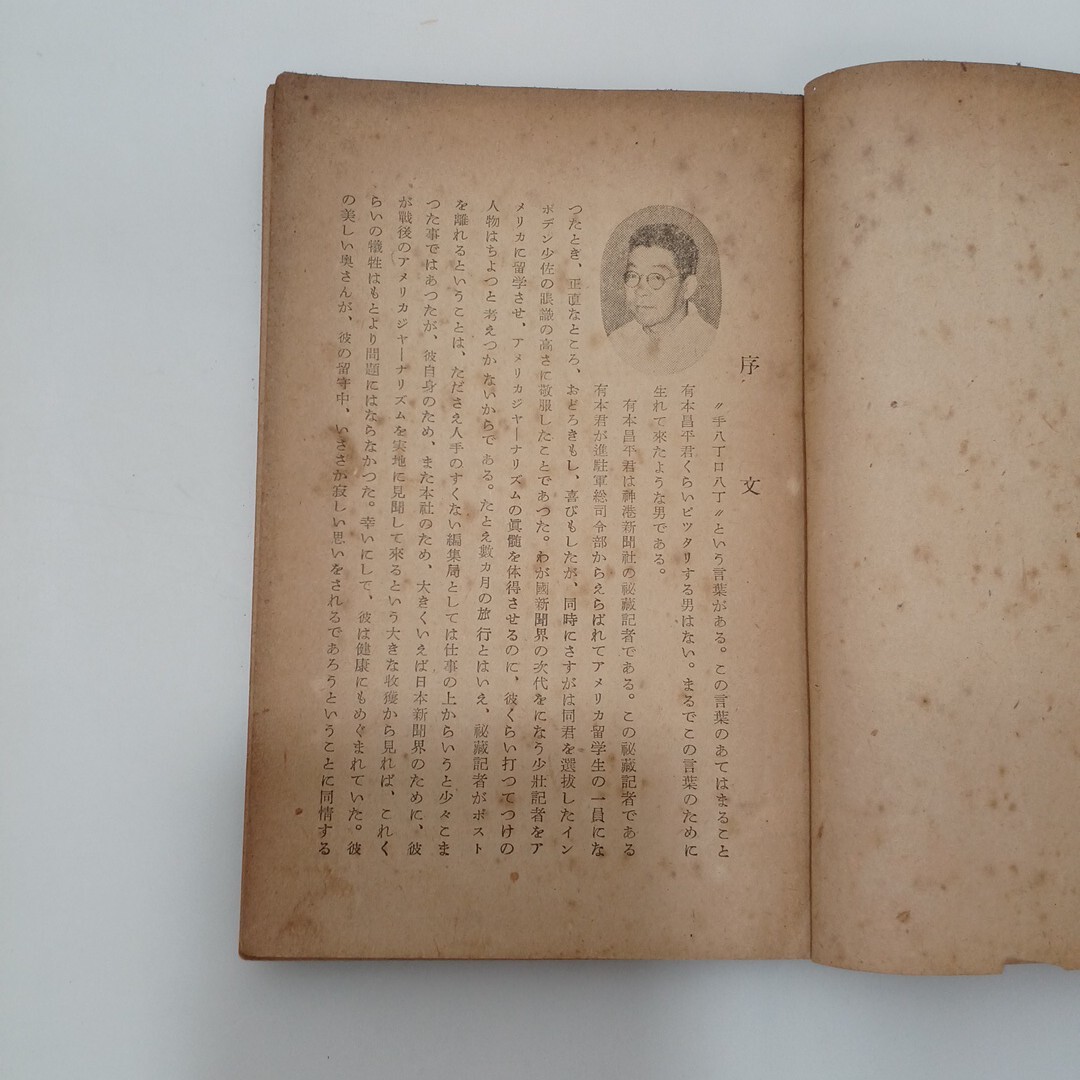 序文
〃手八丁口八丁〃という言葉がある。この言葉のあてはまること
有本昌平君くらいピツタリする男はない。まるでこの言葉のために
生れて来たような男である。
有本昌平君は神港新聞社の祕藏記者である。この祕藏記者である
有本君が進駐軍総司令部からえらばれてアメリカ留学生の一員にな
つたとき、正直なところ、おどろきもし、喜びもしたが、同時にさすがは同君を選拔したイン
ボデン少佐の眼識の高さに敬服したことであつた。わが國新聞界の次代をになう少壯記者をア
メリカに留学させ、アメリカジヤーナリズムの眞髄を体得させるのに、彼くらい打つてつけの
人物はちよつと考えつかないからである。たとえ數カ月の旅行とはいえ、祕藏記者がポスト
を離れるということは、たださえ人手のすくない編集局としては仕事の上からいうと少々こま
つた事ではあつたが、彼自身のため、また本社のため、大きくいえば日本新聞界のために、彼
が戰後のアメリカジヤーナリズムを実地に見聞して來るという大きな收獲から見れば、これく
らいの犠牲はもとより問題にはならなかつた。幸いにして、彼は健康にもめぐまれていた。彼
の美しい奥さんが、彼の留守中、いささか寂しい思いをされるであろうということに同情する